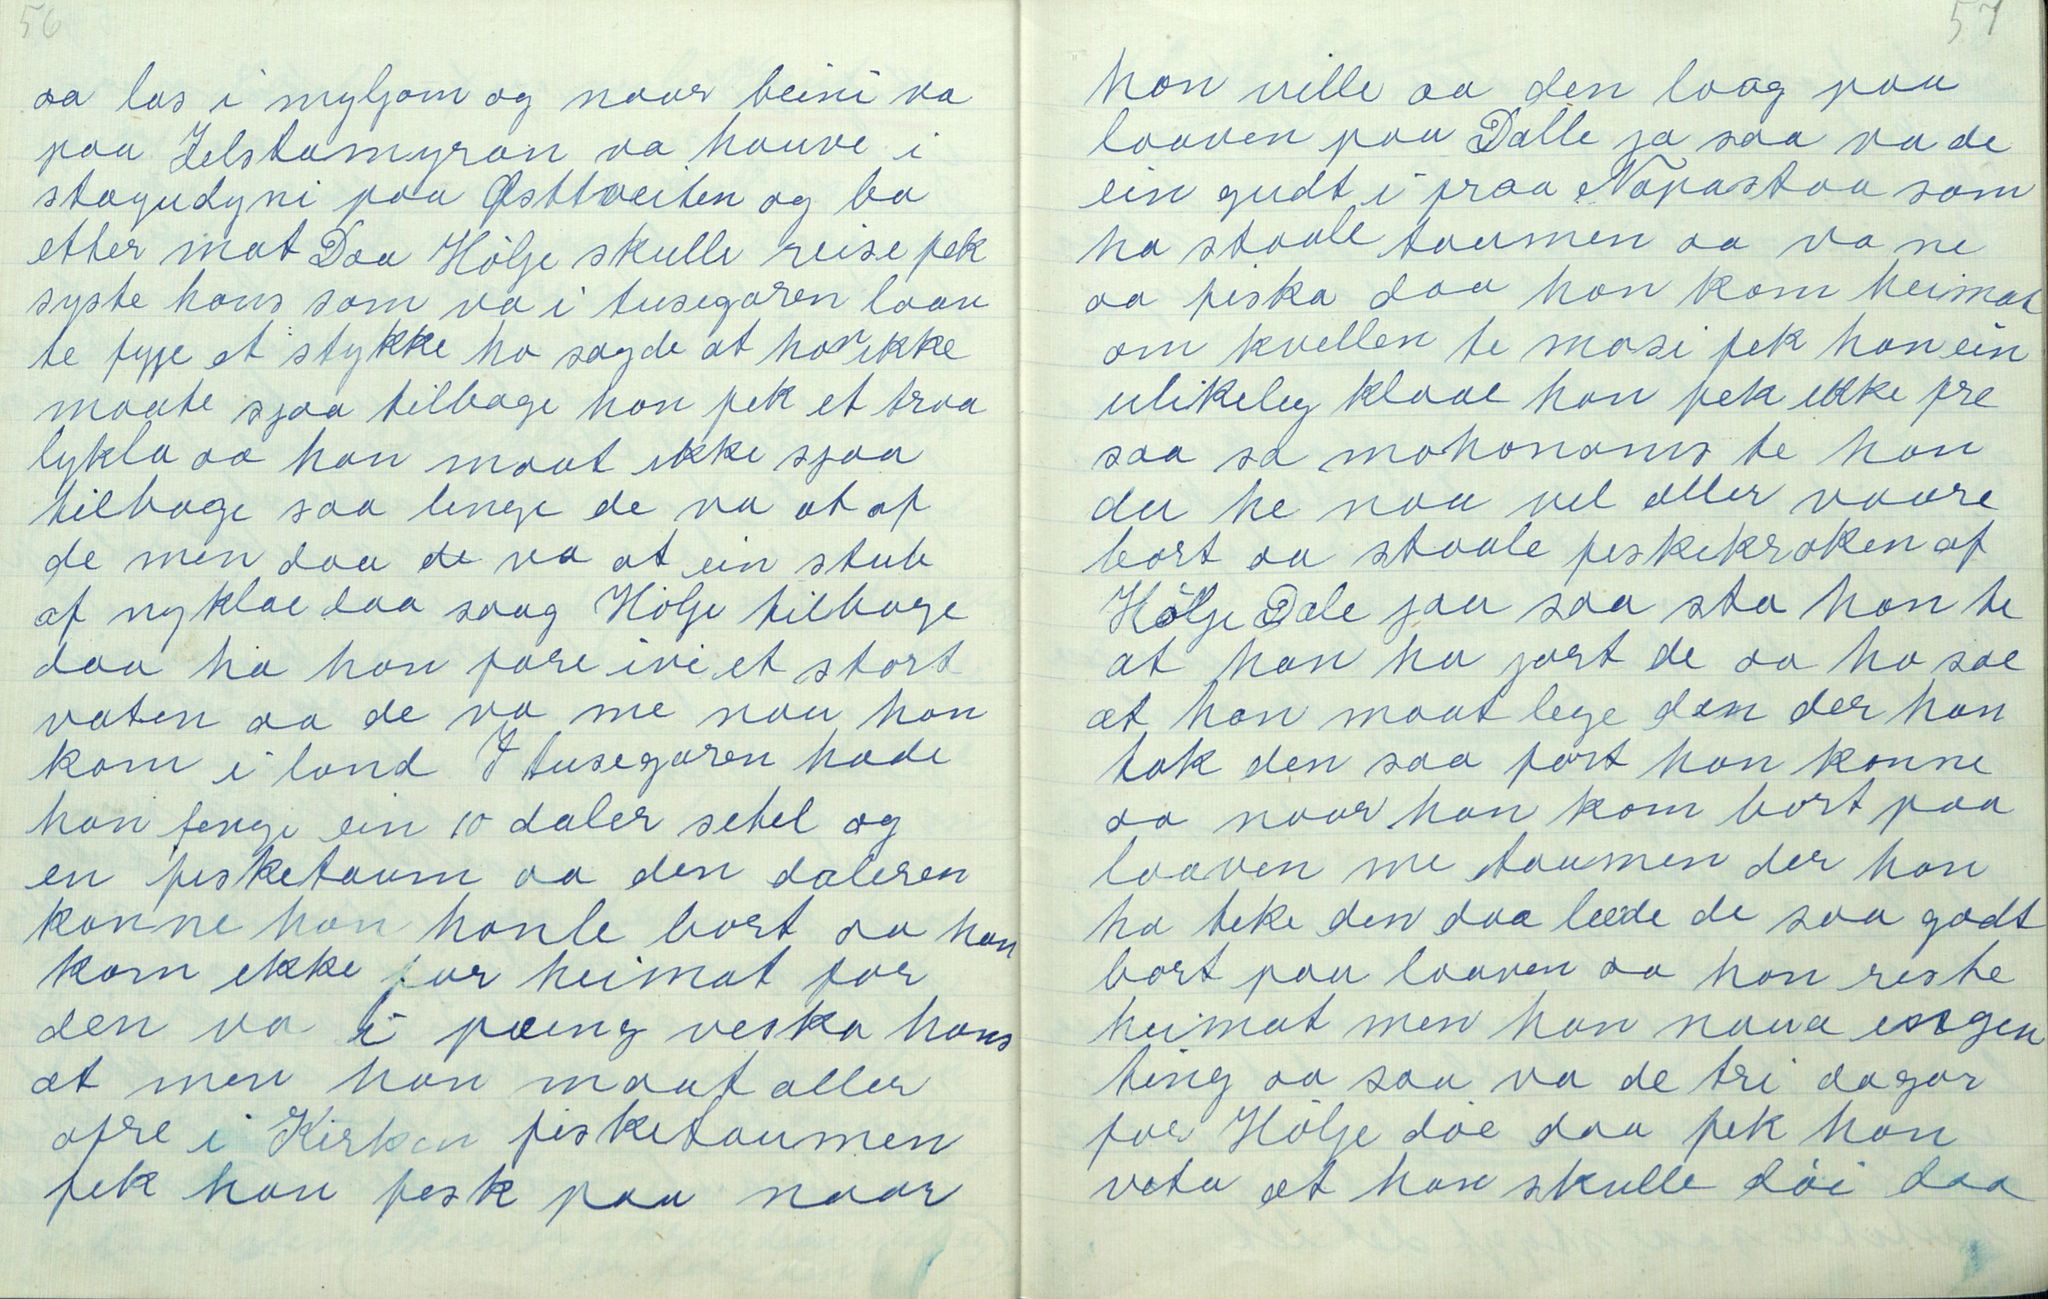 56
sa las i myljom og naar beini va
paa Telstamyran va houve i
stogudyni paa Østtveiten og ba
etter mat Daa Hölje skulle reise fek
syste hans som va i tusegaren laau
te fyje et stykke ho sagde at han ikke
maate sjaa tilbage han fek et traa
lykla aa han maat ikke sjaa
tilbage saa lenge de va at af
de men daa de va at ein stub
af nykläe daa saag Hölje tilbage
daa ha han fare ivi et stort
vaten aa de va me nau han
kom i land I tusegaren hade
han fenge ein 10 daler setel og
en fisketaum aa den daleren
konne han hanle bort aa han
kom ikke før heimat før
den va i pæing veska hans
at men han maat aller
afre i Kirken fisketaumen
fek han fesk paa naar
57
han ville aa den laag paa
laaven paa Dalle ja saa va de
ein gudt i fraa Napastaa som
ha staale taumen aa va ne
aa fiska daa han kom heimat
om kvellen te masi fek han ein
ulikeleg klaae han fek ikke fre
saa sa mohonams te han
du he naa vel aller vaare
bort aa staale feskekroken af
Hölje Dale jaa saa sta han te
at han ha jort de aa ho sae
at han maat lege den der han
tok den saa fort han konne
aa naar han kom bort paa
laaven me taumen der han
ha teke den daa leede de saa godt
bort paa laaven aa han reiste
heimat men han naua ingen
ting aa saa va de tri dagar
før Hölje döe daa fek han
veta at han skulle döi daa